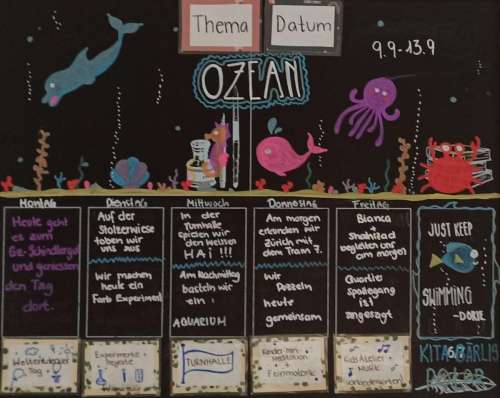 Thema
Datum
9.9-13.9
OZEAN
Montag
Dienstag
Mittwoch
Donnerstag
Freitag
Heute geht
es zum
Gz-Schindlergut
und geniessen
den Tag
dort.
Auf der
Stolzewiese
toben wir
uns aus
Wir machen
heute ein
Farb Experiment
In der
Turnhalle
spielen wir
den weissen
HAI!!!
Am Nachmittag
basteln wir
ein
AQUARIUM
Am morgen
erkunden wir
Zürich mit
dem Tram 7.
Wir
Puzzeln
heute
gemeinsam
Bianca
begleiten uns
am morgen
Quartier
spaziergang
ist
angesagt
JUST KEEP
SWIMMING
-DORIE
Weltentdecker
Tag
Experimente +
Projekte
TURNHALLE
Kinder
+
Feinmotorik
Kids Atelier +
Musik
KITABÄRLIS